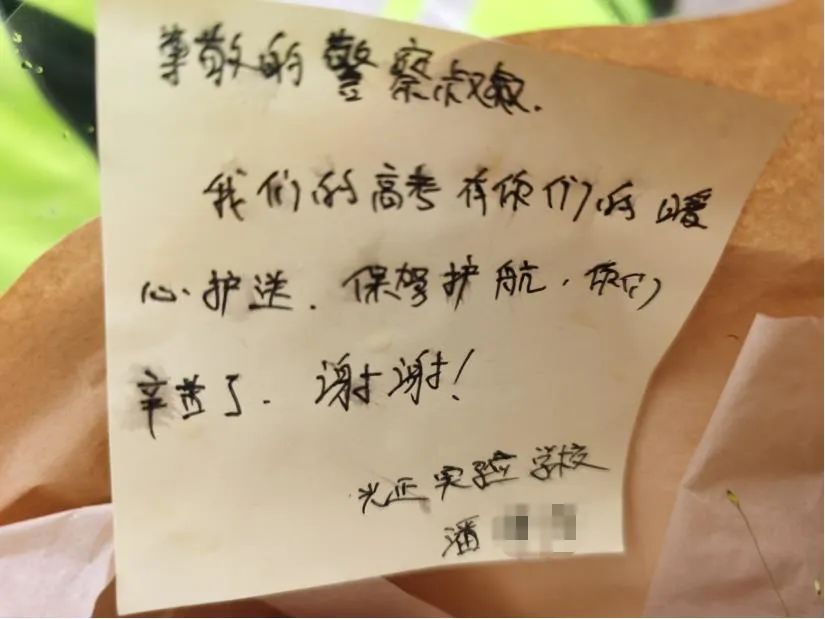 尊敬的警察叔叔.
我们的高考有你们的暖
心护送.保驾护航.你们
辛苦了.谢谢!
光正实验学校
潘